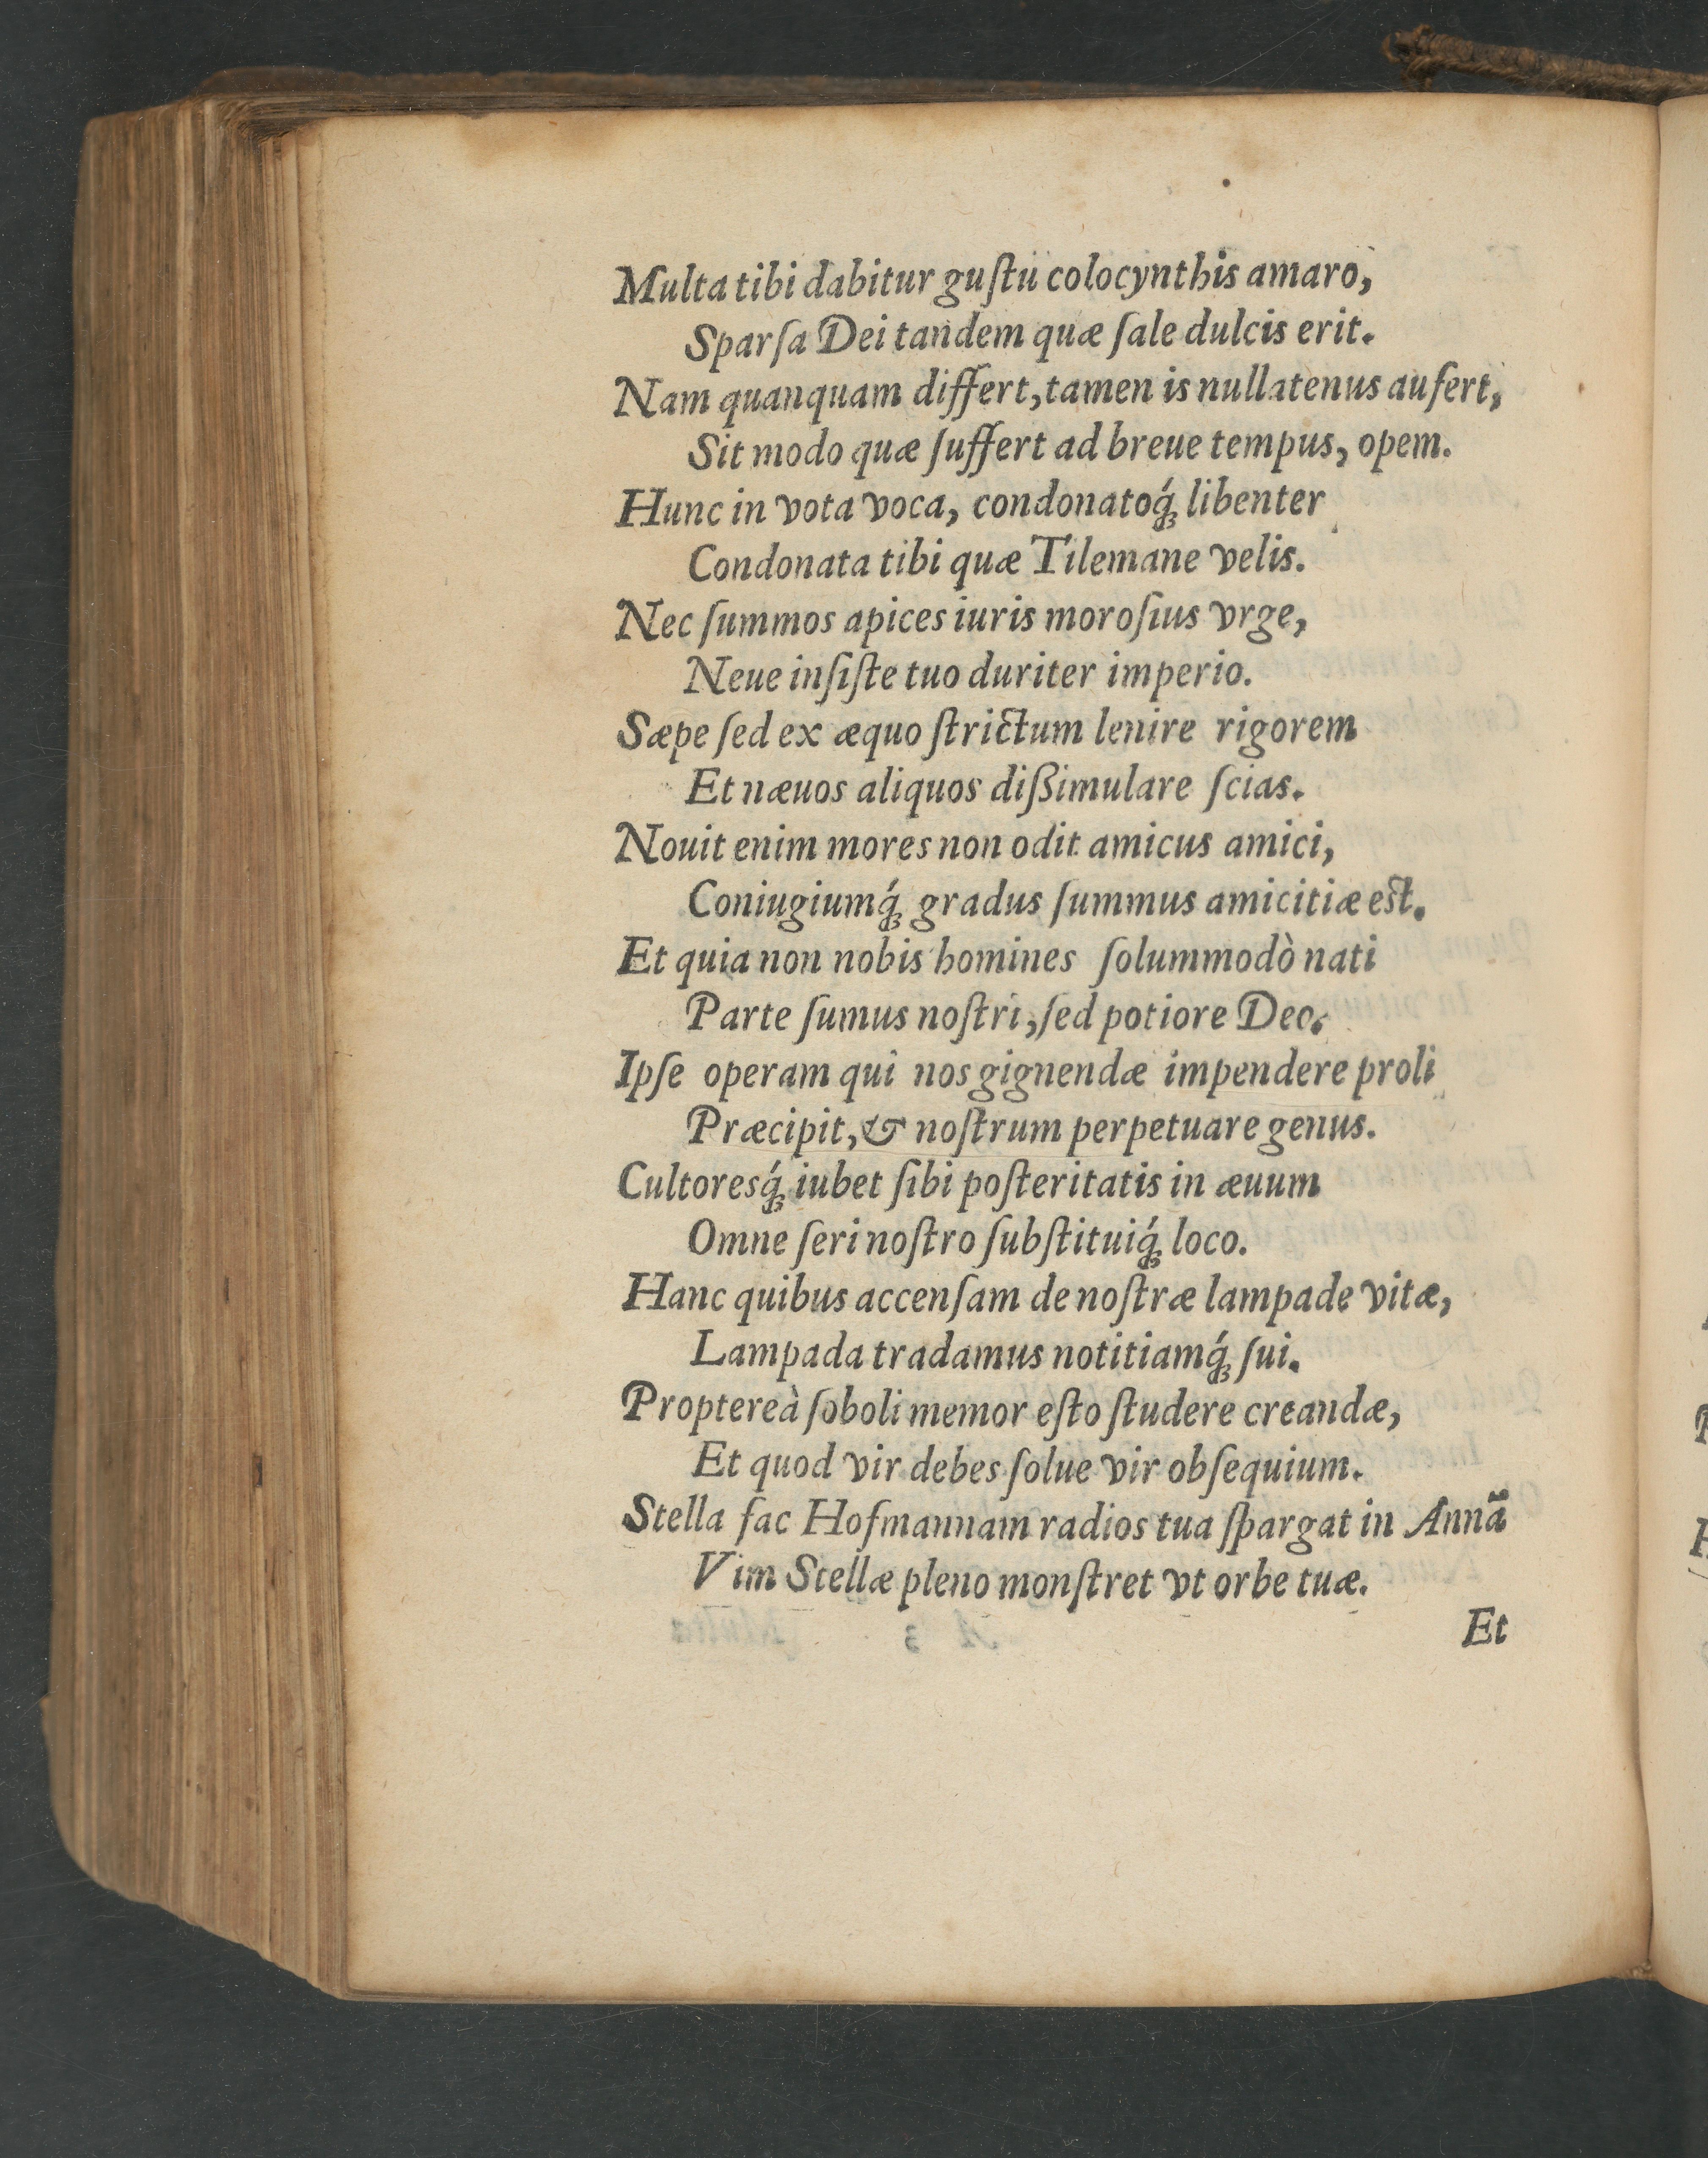 Multa tibi dabitur guſtu colocynthis amaro,
Sparſa Dei tandem quæ ſale dulcis erit.
Nam quanquam differt, tamen is nullatenus aufert,
Sit modo quæ ſuffert ad breue tempus, opem.
Hunc in vota voca, condonatoq́ꝫ libenter
Condonata tibi quæ Tilemane velis.
Nec ſummos apices iuris moroſius vrge,
Neue inſiſte tuo duriter imperio.
Sæpe ſed ex æquo ſtrictum lenire rigorem
Et næuos aliquos dißimulare ſcias.
Nouit enim mores non odit amicus amici,
Coniugiumq́ꝫ gradus ſummus amicitiæ eſt.
Et quia non nobis homines ſolummodò nati
Parte ſumus noſtri, ſed potiore Deo.
Ipſe operam qui nos gignendæ impendere proli
Præcipit, & noſtrum perpetuare genus.
Cultoresq́ꝫ iubet ſibi poſteritatis in æuum
Omne ſeri noſtro ſubſtituiq́ꝫ loco.
Hanc quibus accenſam de noſtræ lampade vitæ,
Lampada tradamus notitiamq́ꝫ ſui.
Proptereà ſoboli memor eſto ſtudere creandæ,
Et quod vir debes ſolue vir obſequium.
Stella fac Hofmannam radios tua ſpargat in Annã
Vim Stellæ pleno monſtret vt orbe tuæ.
Et